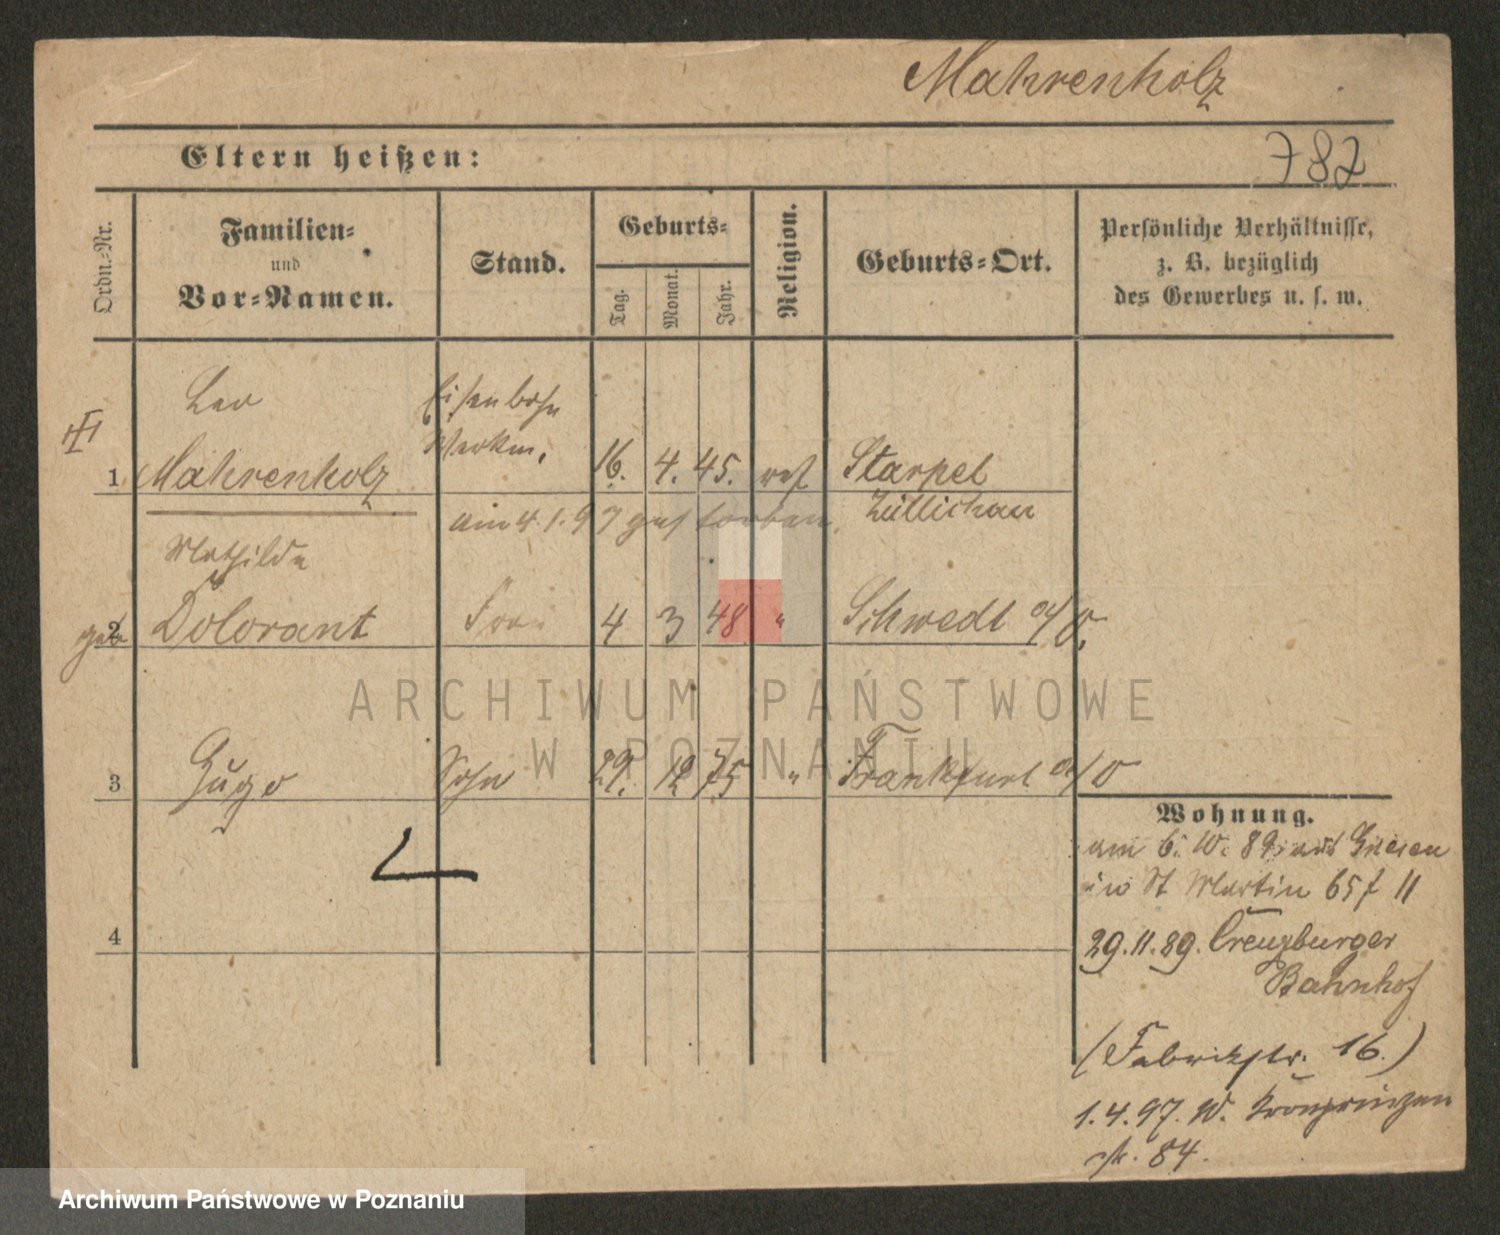 Mahrenholz
Eltern heißen:
782
Ordn.-Nr.
Familien-
und
Vor-Namen.
Stand.
Geburts-
Tag.
Monat.
Jahr.
Religion.
Geburts-Ort.
Persönliche Verhältnisse,
z. B. bezüglich
des Gewerbes u. s. w.
Leo
Eisenbahn
Werkm.
1 Mahrenholz 16. 4. 45. ref Starpel
Züllichau
am 4.1.97 gestorben.
Mathilde
geb 2 Dolorant Frau 4 3 48 " Schwedt a/O.
3 Hugo Sohn 29. 12 75 " Frankfurt a/O
4
Wohnung.
am 6. 10. 89 aus Gnesen
in St Martin 65 f II
29.11.89. Creuzburger
Bahnhof
(Fabrikstr. 16.)
1.4.97. W. Kronprinzen
str. 84.
ARCHIWUM PAŃSTWOWE
W POZNANIU
Archiwum Państwowe w Poznaniu